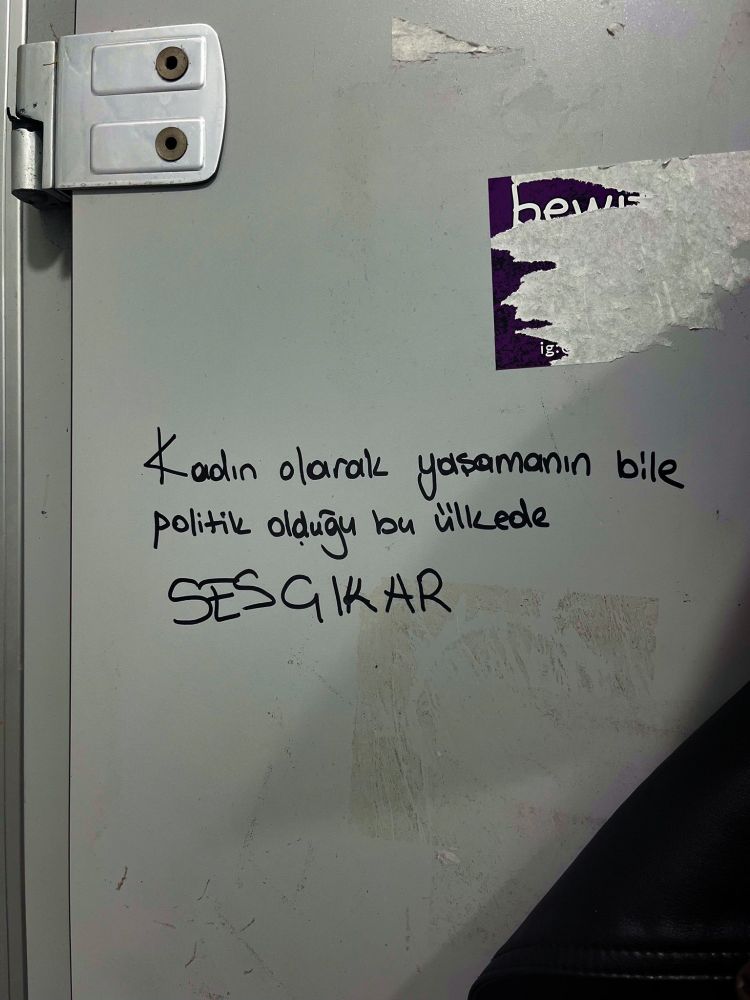 ig:
Kadın olarak yaşamanın bile
politik olduğu bu ülkede
SES ÇIKAR